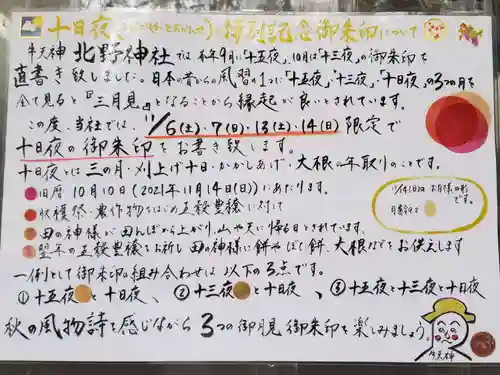 十日夜 特別記念御朱印について
牛天神 北野神社では、本年9月に「十五夜」、10月は「十三夜」の御朱印を
直書き致しました。日本の昔からの風習の1つに「十五夜」、「十三夜」、「十日夜」の3つの月を
全て見ると『三月見』となることから縁起が良いとされています。
この度、当社では、11/6(土)・7(日)・13(土)・14(日)限定で
十日夜の御朱印をお書き致します。
十日夜とは三の月・刈上げ十日・かかしあげ・大根の年取りのことです。
旧暦10月10日(2021年11月14日(日))にあたります。
収穫祭・農作物をはじめ五穀豊穣に対して
田の神様が田んぼから上がり、山や天に帰る日とされています。
翌年の五穀豊穣をお祈し田の神様に餅やぼた餅、大根などをお供えします
一例として御朱印の組み合わせは以下の3点です。
①十五夜と十日夜、 ②十三夜と十日夜、 ③十五夜と十三夜と十日夜
秋の風物詩を感じながら3つの御月見御朱印を楽しみましょう。
11/14(日)のお月様の形
です。
月齢9.2
牛天神